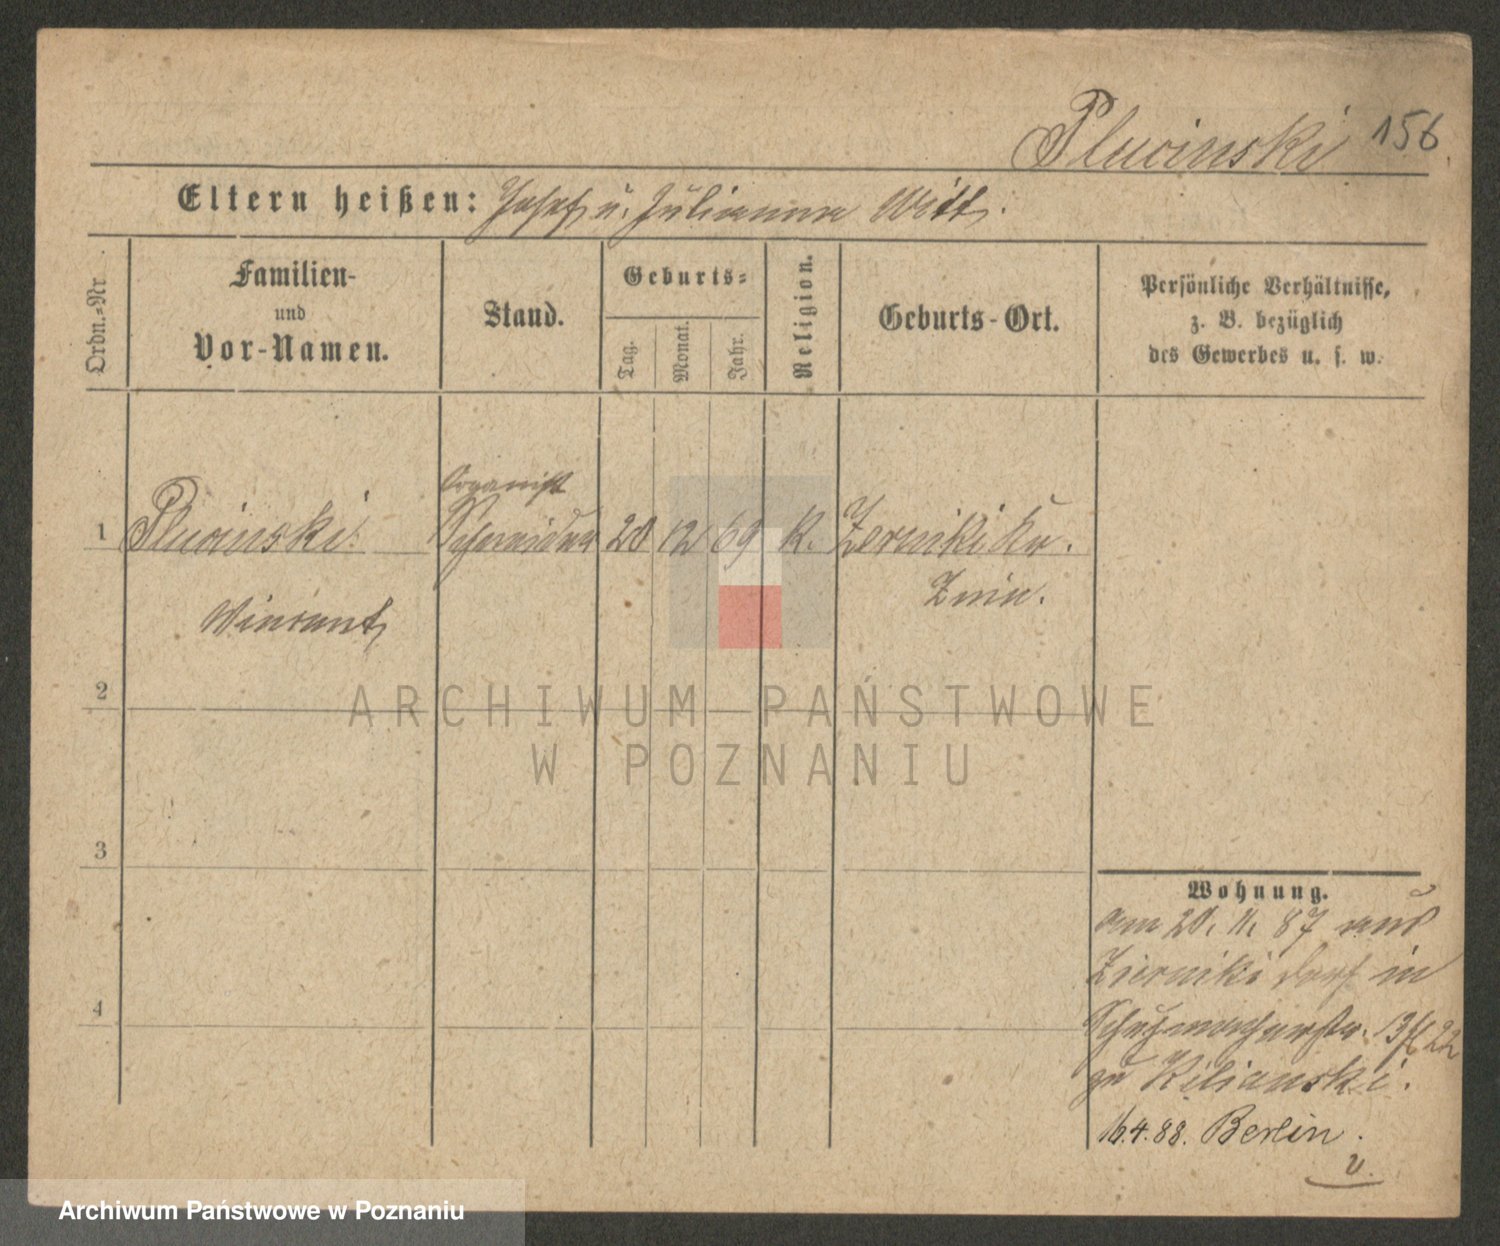 Plucinski 156
Eltern heißen: Josef u. Julianna Witt.
Ordn.-Nr.
Familien-
und
Vor-Namen.
Stand.
Geburts-
Tag.
Monat.
Jahr.
Religion.
Geburts-Ort.
Persönliche Verhältnisse,
z. B. bezüglich
des Gewerbes u. s. w.
Organist
1 Plucinski Schneider 20 12 69 K. Zerniki Kr.
Znin.
Vincent
2
3
4
ARCHIWUM PAŃSTWOWE
W POZNANIU
Wohnung.
am 20. 11. 87 aus
Zierniki Dorf in
Schuhmacherstr. 13/22
zu Kilianski.
16.4.88. Berlin.
Archiwum Państwowe w Poznaniu